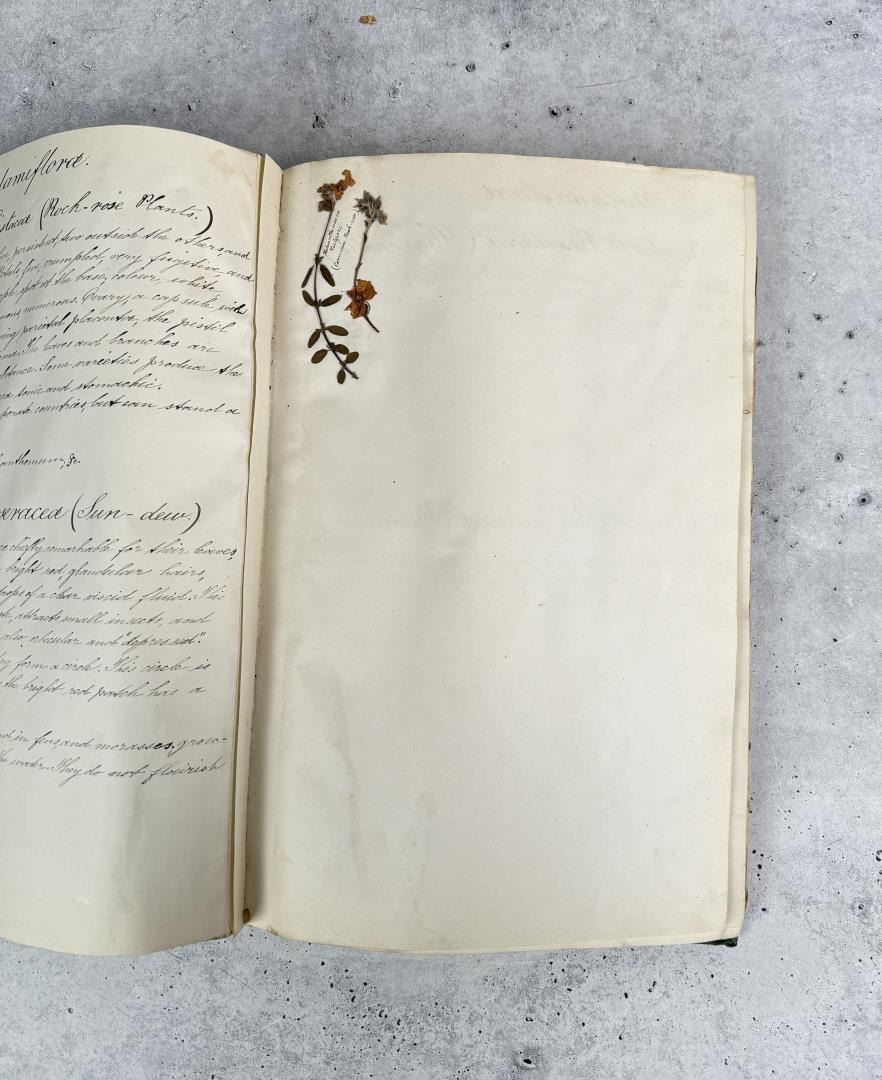 lamiflora.
istaceæ (Rock-rose Plants.)
persistent, two outside the others, and
Petals five, crumpled, very fugitive, and
ple spot at the base; colour, white
mens numerous. Ovary, a capsule with
ing parietal placentæ, the pistil
ma. The leaves and branches are
bstance. Some varieties produce the
a tonic and stomachic.
perate countries, but can stand a
ianthemum, &c.
seraceæ (Sun-dew.)
re chiefly remarkable for their leaves,
bright red glandular hairs,
drops of a clear viscid fluid. This
attracts small insects, and
also orbicular and "depressed".
ey form a circle. This circle is
the bright red patch has a
nd in fens, and morasses, grow-
the water. They do not flourish
Helianthemum
vulgare
(Common Rock-rose)